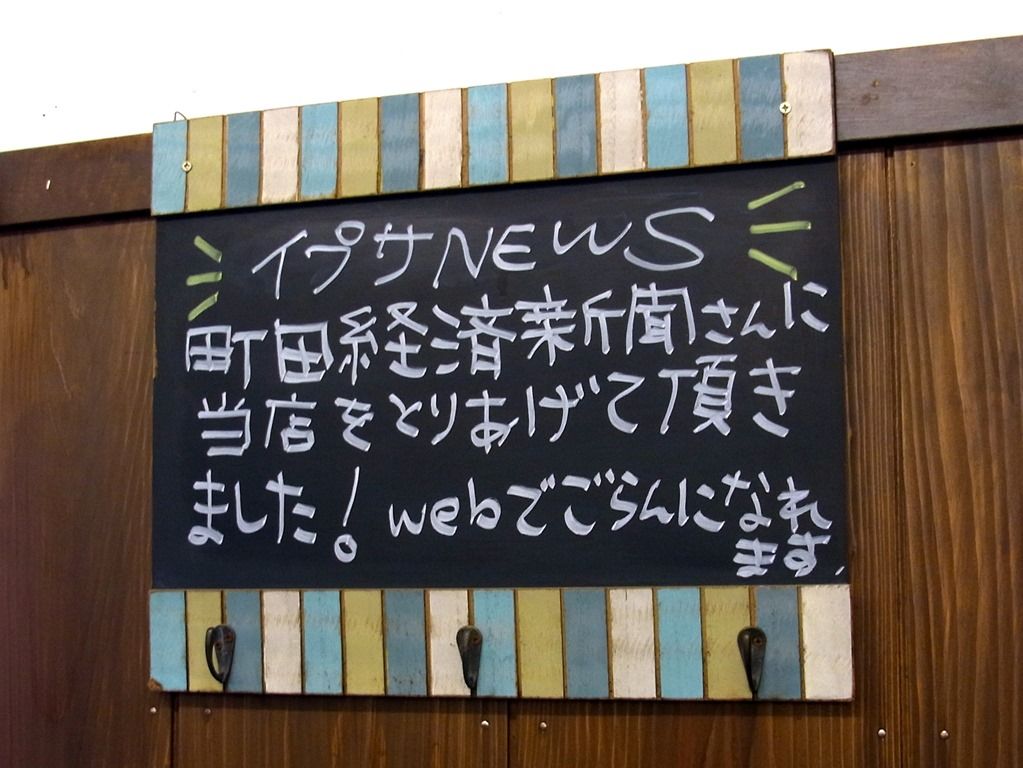 イプサNEWS
町田経済新聞さんに
当店をとりあげて頂き
ました! webでごらんになれ
ます.